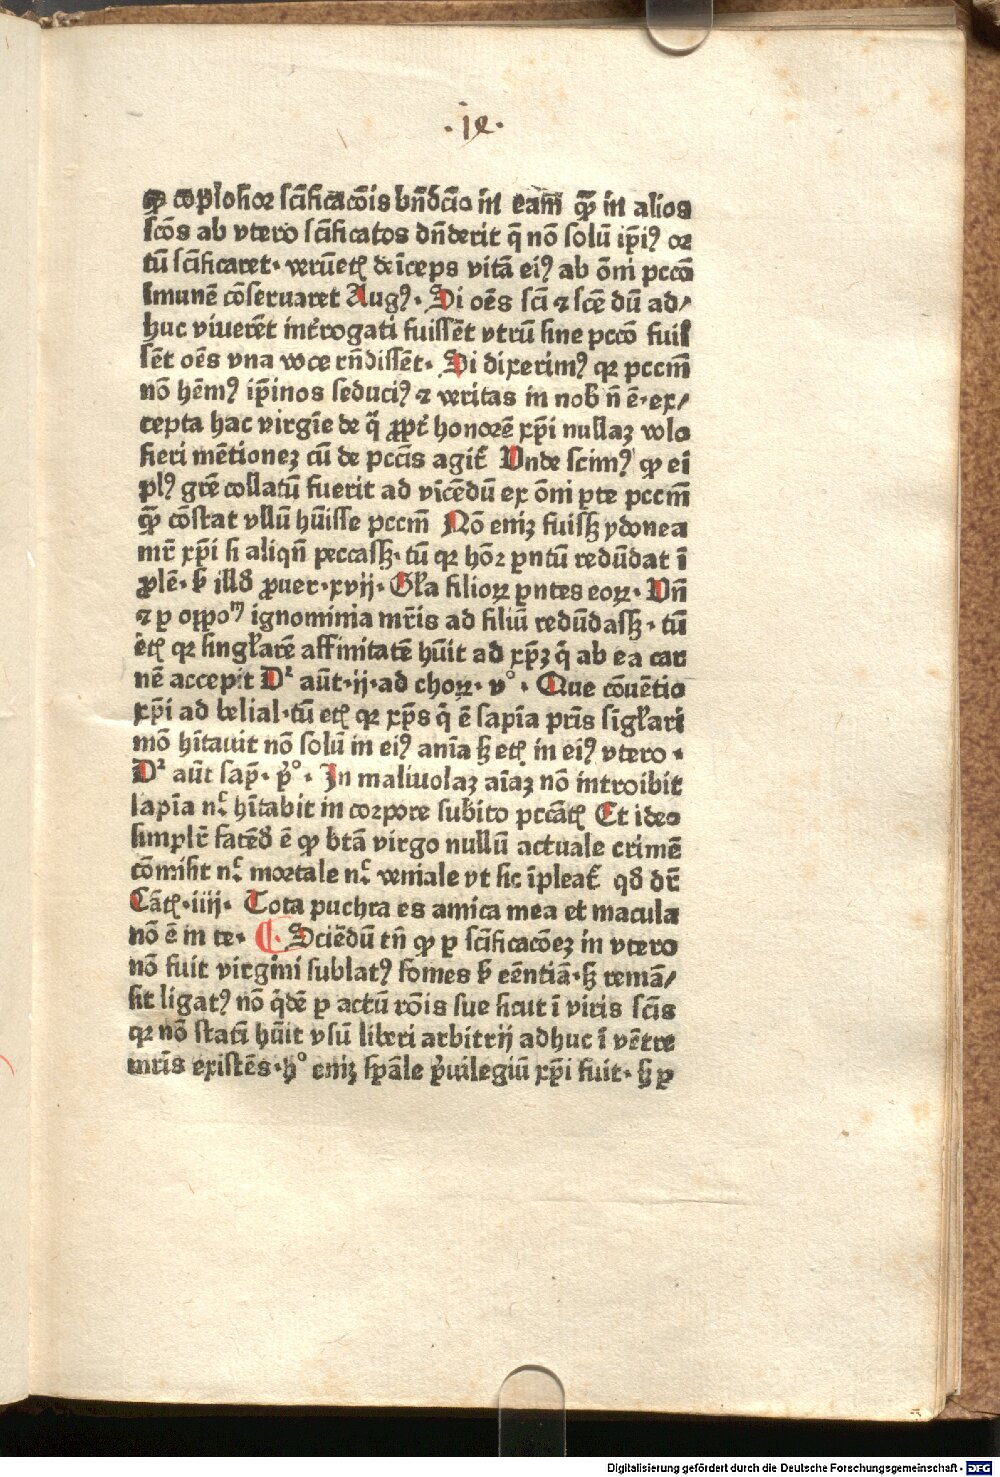 ·ie·
ꝙ copiosior scīficacōis bn̄dcīo in eam̄ qͣ̄ in alios
scōs ab vtero scīficatos dn̄derit q̄ nō solū ip̄iꝰ or
tū scīficaret· verūetꝭ deīceps vitā eiꝰ ab ōni pccō
Imunē cōseruaret Augꝰ· Si oēs scī ⁊ scē dū ad/
huc viuerēt int̄rogati fuissēt vtrū sine pccō fuis
sēt oēs vna voce rn̄dissēt· Si dixerimꝰ qꝛ pccm̄
nō hēmꝰ ip̄inos seduciꝰ ⁊ veritas in nob̄ n̄ ē·ex/
cepta hac virgīe de q̄ ꝓpt̄ honorē xp̄i nullaꝫ volo
fieri mētioneꝫ cū de pccīs agit̄ Vnde scimꝰ ꝙ ei
plꝰ grē collatū fuerit ad vīcēdū ex ōni ꝑte pccm̄
qͣ̄ cōstat vllū hūisse pccm̄ Nō eniꝫ fuisꝫ ydonea
mr̄ xp̄i si aliqn̄ peccasꝫ· tū qꝛ hōꝛ pn̄tū redūdat ī
ꝓlē· ẜ illd̄ ꝓuer·xvij· Gl̄a filioꝝ pn̄tes eoꝝ· Vn̄
⁊ ꝑ oppoⁿ ignominia mr̄is ad filiū redūdasꝫ· tū
ētꝭ qꝛ singl̄arē affinitatē hūit ad xp̄ꝫ q̄ ab ea car
nē accepit Dʳ aūt·ij·ad choꝝ· vº· Que cōuētio
xp̄i ad belial·tū etꝭ qꝛ xp̄s q̄ ē sapīa pr̄is sīgl̄ari
mō hītauit nō solū in eiꝰ anīa sꝫ etꝭ in eiꝰ vtero·
Dʳ aūt sap̄· p̄º· In maliuolaꝫ aīaꝫ nō introibit
sapīa nͨ hītabit in corpore subito pccātꝭ Et ideo
simpl̄r fatēd̄ ē ꝙ btā virgo nullū actuale crimē
cōmisit nͨ mortale nͨ veniale vt sic īpleat̄ qd̄ dr̄
Cātꝭ·iiij· Tota puchra es amica mea et macula
nō ē in te· C· Sciēdū tn̄ ꝙ ꝑ scīficacōeꝫ in vtero
nō fuit virgini sublatꝰ fomes ẜ eēntiā·sꝫ remā/
sit ligatꝰ nō q̄dē ꝑ actū rōis sue sicut ī viris scīs
qꝛ nō statī hūit vsū liberi arbitrij adhuc ī vētre
mr̄is existēs·hº eniꝫ sp̄āle p̄uilegiū xp̄i fuit· sꝫ ꝑ
Digitalisierung gefördert durch die Deutsche Forschungsgemeinschaft - DFG